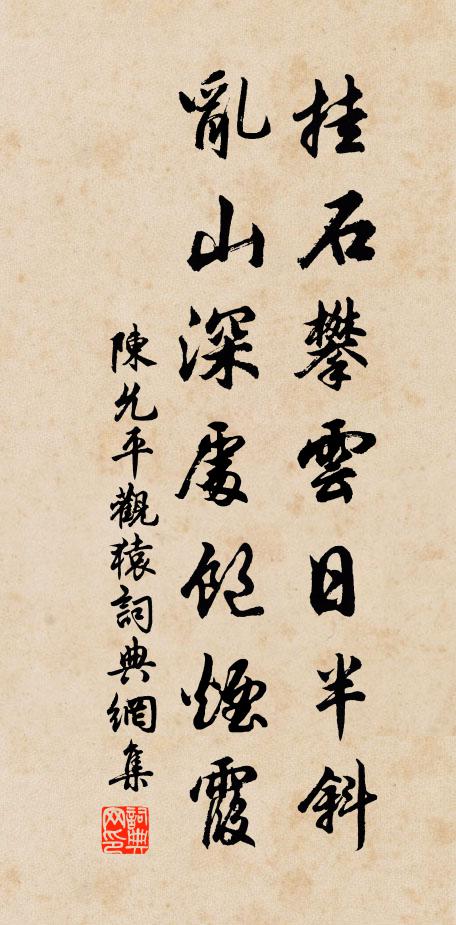 挂石攀雲日半斜
亂山深處飽煙霞
陳允平觀猿詞典網集
詞典网印